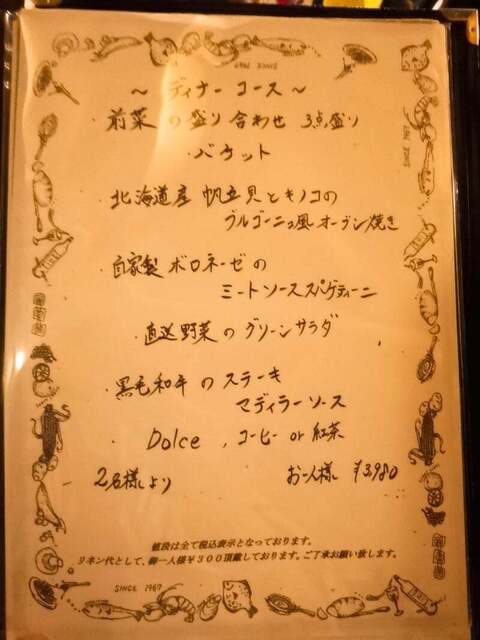 SINCE 1967
～ ディナー コース ～
前菜 の 盛り 合わせ 3点盛り
・バケット
・北海道産 帆立貝とキノコの
ブルゴーニュ風 オーブン焼き
・自家製 ボロネーゼ の
ミートソーススパゲティーニ
・直送野菜 の グリーンサラダ
・黒毛和牛 の ステーキ
マディラーソース
Dolce , コーヒー or 紅茶
2名様より お一人様 ¥3,980
値段は全て税込表示となっております。
リネン代として、御一人様¥300頂戴しております。ご了承お願い致します。
SINCE 1967
SINCE 1967